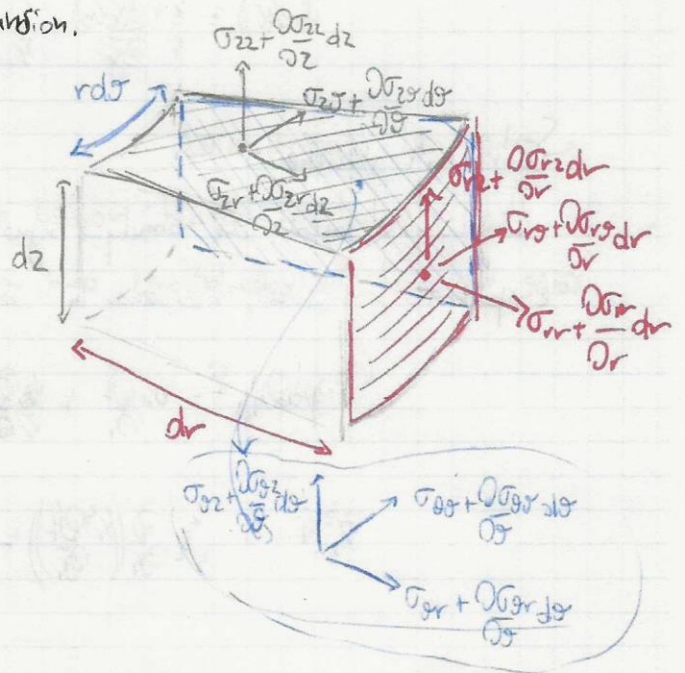 ansion.
σzz + ∂σzz/∂z dz
rdϑ
σzϑ + ∂σzϑ/∂ϑ dϑ
σzr + ∂σzr/∂z dz
σrz + ∂σrz/∂r dr
dz
σrϑ + ∂σrϑ/∂r dr
σrr + ∂σrr/∂r dr
dr
σϑz + ∂σϑz/∂ϑ dϑ
σϑϑ + ∂σϑϑ/∂ϑ dϑ
σϑr + ∂σϑr/∂ϑ dϑ